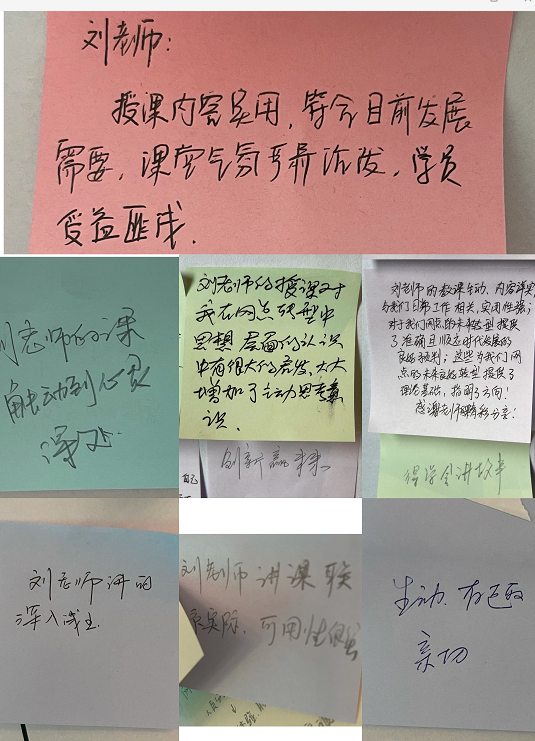 刘老师：
授课内容实用，符合目前发展
需要，课堂气氛异常活发，学员
受益匪浅.
刘老师的课
触动到心灵
深处
刘老师的授课对
我在网点转型中
思想层面的认识
中有很大的启发，大大
增加了主动思考意
识。
创新赢未来
刘老师的教课生动、内容详实
与我们日常工作相关，实用性强；
对于我们网点的未来转型提供
了准确且顺应时代发展的
良好预判；这些为我们网
点的未来良好转型提供了
理论基础，指明了方向！
感谢老师精彩分享！
得学会讲故事
刘老师讲的
深入浅出
刘老师讲课联
系实际，可用性很强
生动、有色彩
亲切